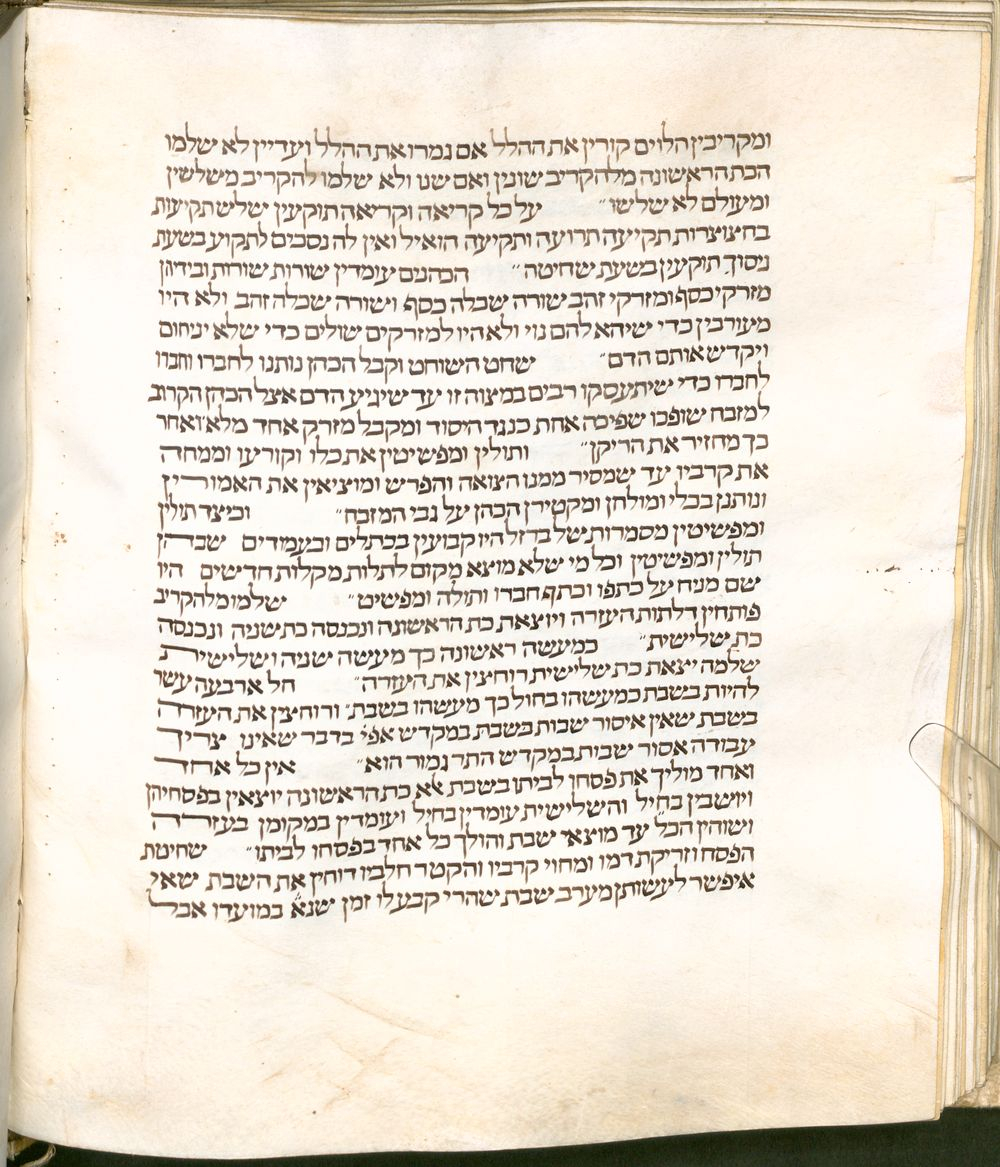 ומקריבין הלוים קורין את ההלל אם גמרו את ההלל ועדיין לא שלמו
הכת הראשונה מלהקריב שונין ואם שנו ולא שלמו להקריב משלשין
ומעולם לא שלשו״ על כל קריאה וקריאה תוקעין שלש תקיעות
בחצוצרות תקיעה תרועה ותקיעה הואיל ואין לה נסכים לתקוע בשעת
ניסוך תוקעין בשעת שחיטה״ הכהנים עומדין שורות שורות ובידיהן
מזרקי כסף ומזרקי זהב שורה שכלה כסף ושורה שכלה זהב ולא היו
מעורבין כדי שיהא להם נוי ולא היו למזרקים שולים כדי שלא יניחום
ויקרש אותם הדם״ שחט השוחט וקבל הכהן נותנו לחברו וחברו
לחברו כדי שיתעסקו רבים במצוה זו עד שיגיע הדם אצל הכהן הקרוב
למזבח שופכו שפיכה אחת כנגד היסוד ומקבל מזרק אחד מלא ואחר
כך מחזיר את הריקן״ ותולין ומפשיטין את כלו וקורעו וממחה
את קרביו עד שמסיר ממנו הצואה והפרש ומוציאין את האמורין
ונותנן בכלי ומולחן ומקטירן הכהן על גבי המזבח״ וכיצד תולין
ומפשיטין מסמרות של ברזל היו קבועין בכתלים ובעמודים שבהן
תולין ומפשיטין וכל מי שלא מוצא מקום לתלות מקלות חדישים היו
שם מניח על כתפו וכתף חברו ותולה ומפשיט״ שלמו מלהקריב
פותחין דלתות העזרה ויוצאת כת הראשונה ונכנסה כת שניה ונכנסה
כת שלישית״ כמעשה ראשונה כך מעשה שניה ושלישית
שלמה יצאת כת שלישית רוחצין את העזרה״ חל ארבעה עשר
להיות בשבת כמעשהו בחול כך מעשהו בשבת ורוחצין את העזרה
בשבת שאין איסור שבות בשבת במקדש אפי׳ בדבר שאינו צריך
עבודה אסור שבות במקדש התר גמור הוא״ אין כל אחד
ואחד מוליך את פסחו לביתו בשבת אלא כת הראשונה יוצאין בפסחיהן
ויושבין בחיל והשלישית עומדין בחיל ועומדין במקומן בעזרה
ושוהין הכל עד מוצאי שבת והולך כל אחד בפסחו לביתו״ שחיטת
הפסח וזריקת דמו ומחוי קרביו והקטר חלביו דוחין את השבת שאי
איפשר לעשותן מערב שבת שהרי קבע לו זמן שנא׳ במועדו אבל